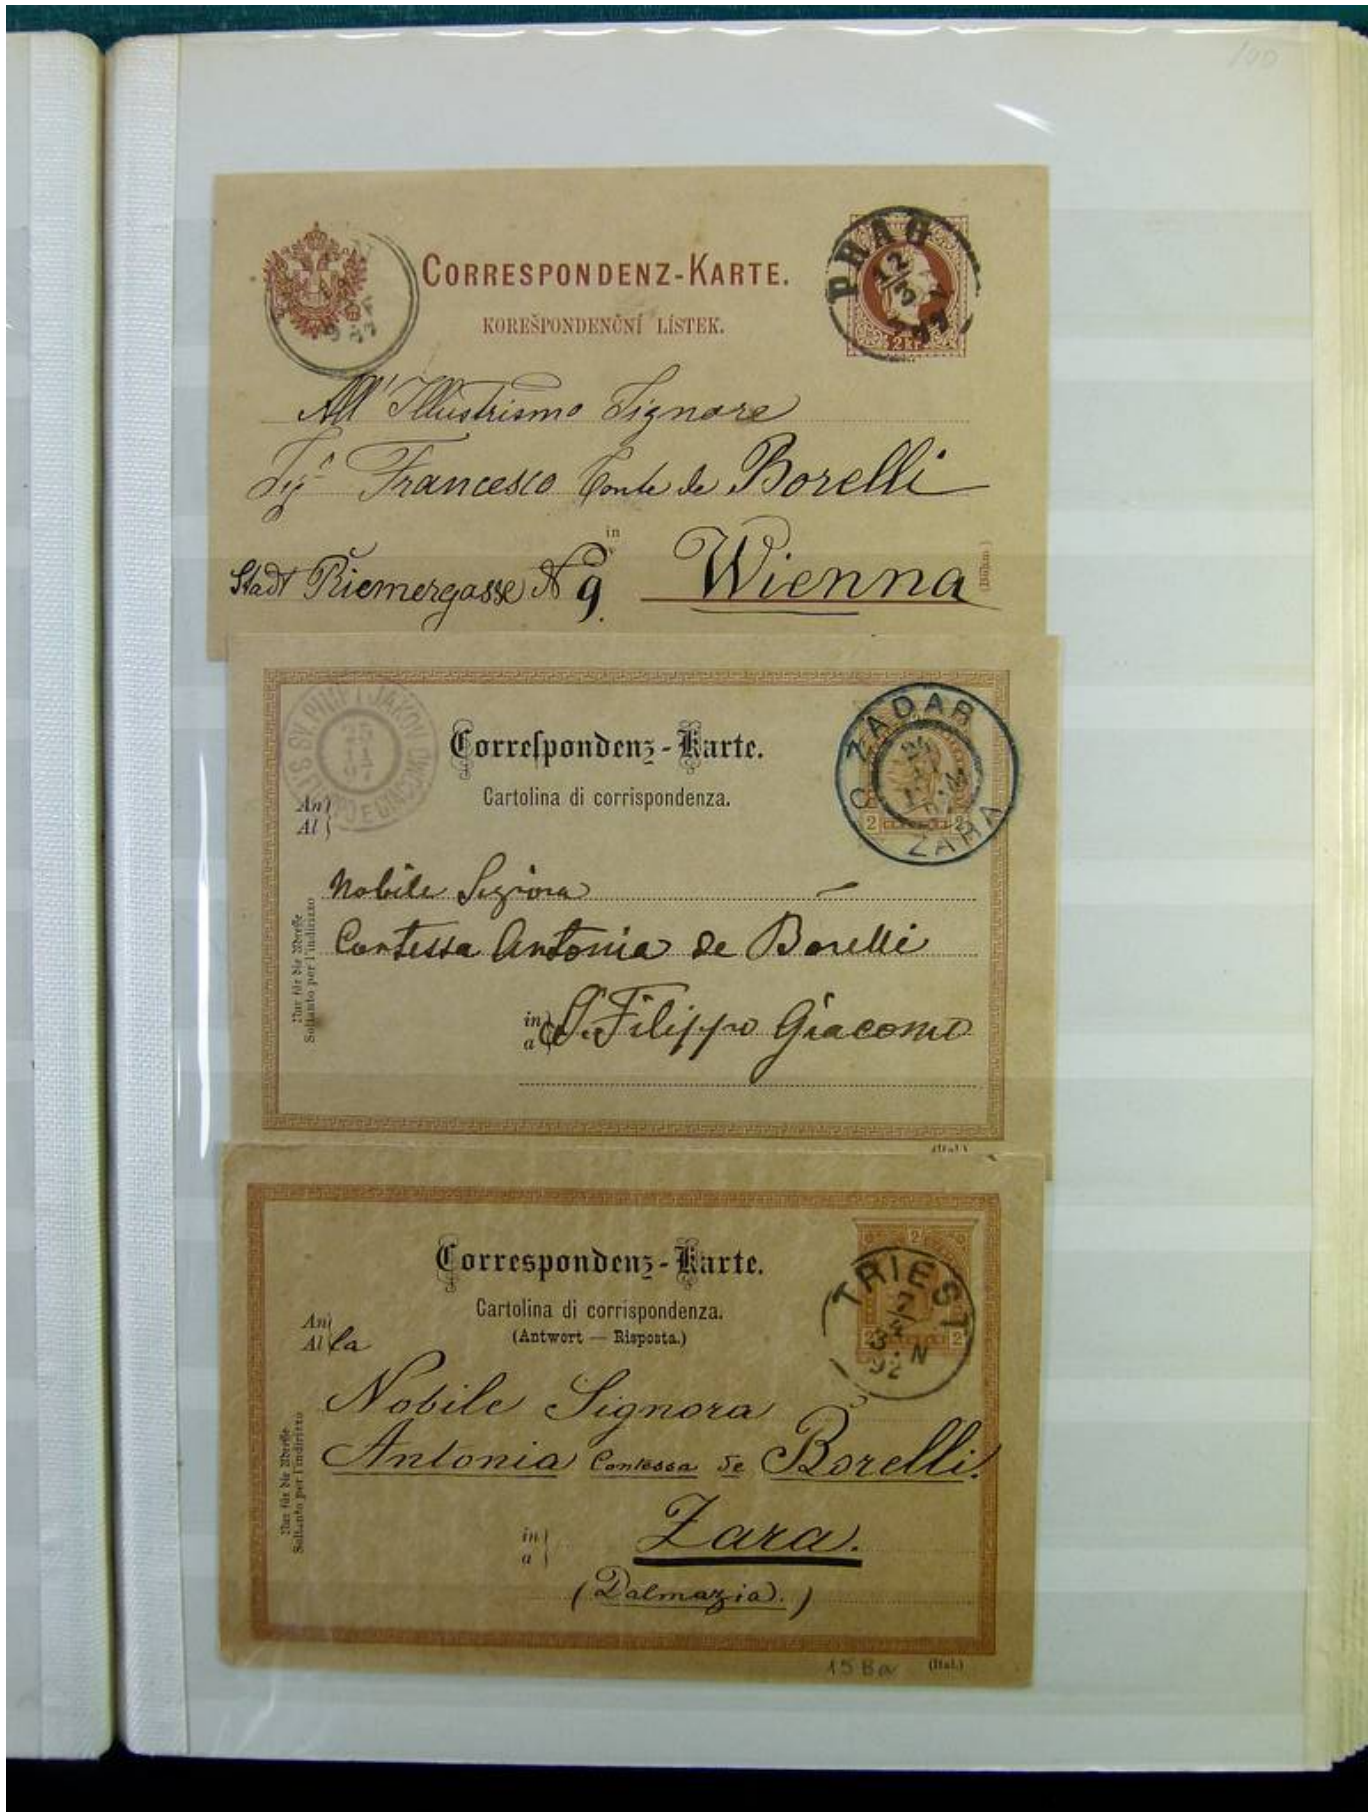 100
CORRESPONDENZ-KARTE.
KOREŠPONDENČNÍ LÍSTEK.
PRAG
12/3
2 kr.
All' Illustrismo Signore
Sigr Francesco Conte de Borelli
in
Stadt Riemergasse No 9. Wienna
(Böhm.)
25
97
Correspondenz-Karte.
Cartolina di corrispondenza.
ZADAR
ZARA
2 2
An
Al
Nobile Signora
Contessa Antonia de Borelli
in
a
S. Filippo Giacomo
Nur für die Adresse
Soltanto per l'indirizzo
(Ital.)
Correspondenz-Karte.
Cartolina di corrispondenza.
(Antwort — Risposta.)
2
2 2
TRIEST
92
An
Al la
Nobile Signora
Antonia Contessa de Borelli.
in
a
Zara.
(Dalmazia.)
Nur für die Adresse
Soltanto per l'indirizzo
(Ital.)